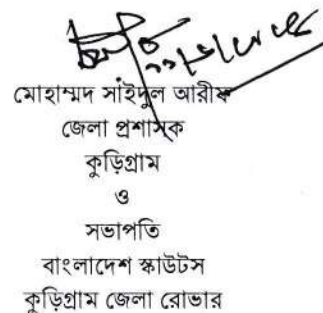 মোহাম্মদ সাইদুল আরীফ
জেলা প্রশাসক
কুড়িগ্রাম
ও
সভাপতি
বাংলাদেশ স্কাউটস
কুড়িগ্রাম জেলা রোভার